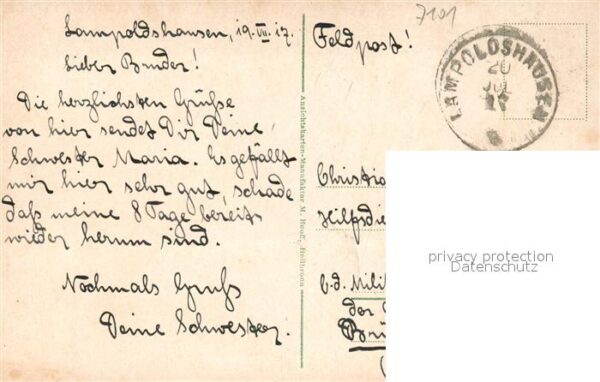 Lampoldshausen, 19.VII.17.
Lieber Bruder!
Die herzlichsten Grüße
von hier sendet Dir Deine
Schwester Maria. Es gefällt
mir hier sehr gut, schade
daß meine 8 Tage bereits
wieder herum sind.
Nochmals Gruß
Deine Schwester.
Ansichtskarten-Manufaktur M. Heilbronn
7101
Feldpost!
LAMPOLDSHAUSEN
20
JUL
17
Christia
Hilfsdie
b.d. Milit
der
Brü
privacy protection
Datenschutz